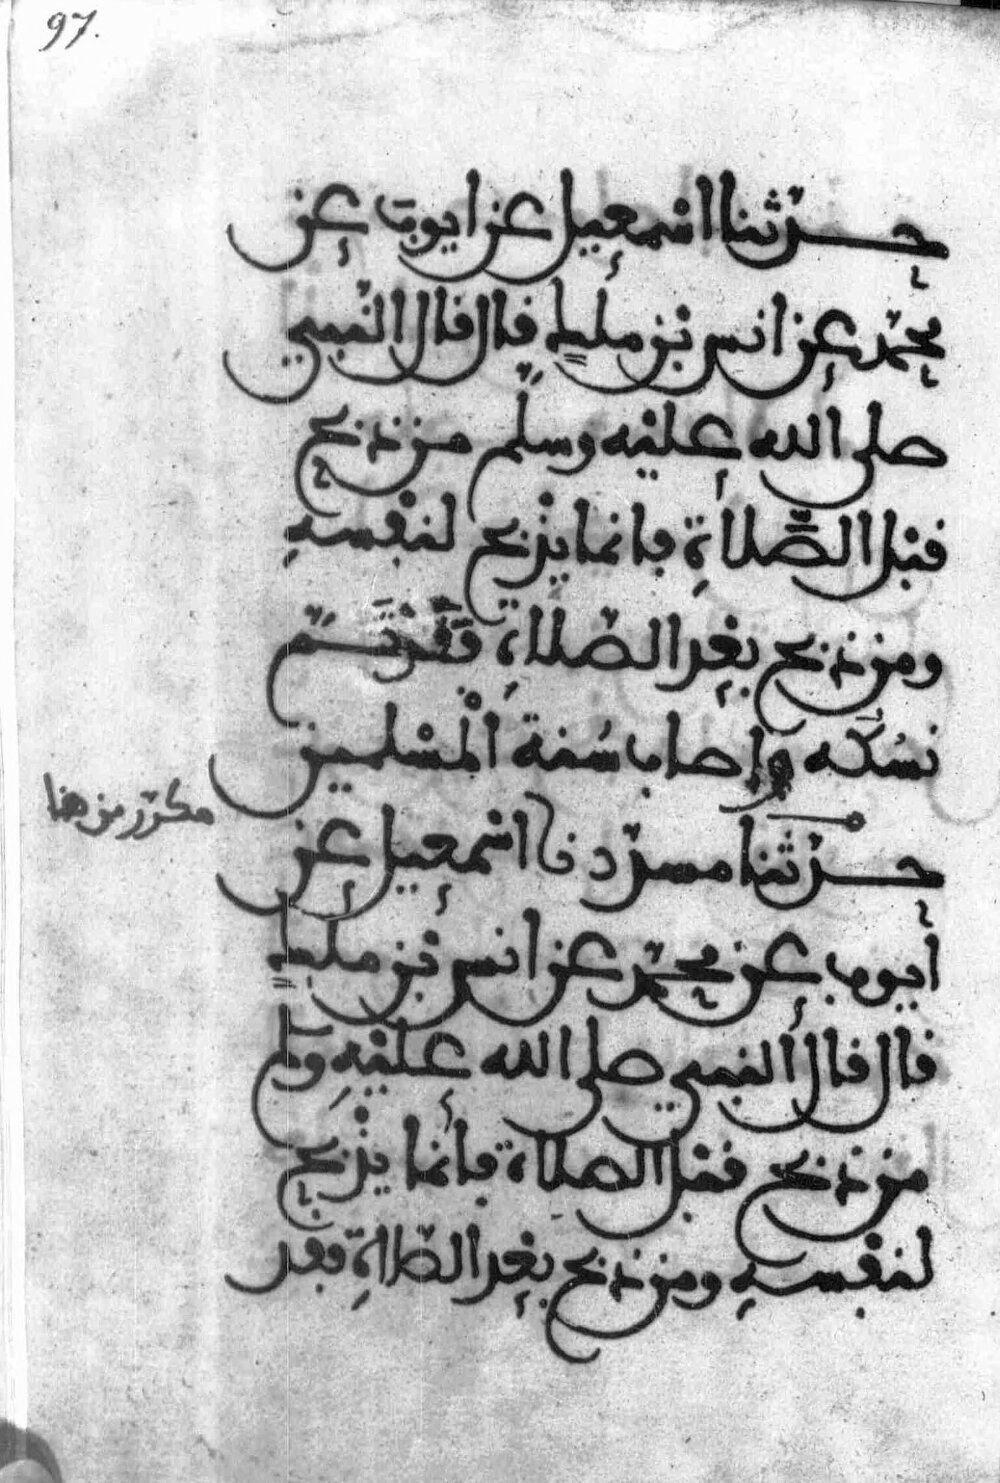 97.
حدثنا اسمعيل عن ايوب عن
محمد عن انس بن ملك قال قال النبي
صلى الله عليه وسلم من ذبح
قبل الصَّلاةِ فانما يذبح لنفسهِ
ومن ذبح بعد الصلاةِ فَقَدْ تَـمَّ
نسُكَه واصاب سُنة الْمسْلمين
مكرّر من هنا
حدثنا مسدد نا اسمعيل عن
أيوب عن محمد عن انس بن ملك
قال قال النبي صلى الله عليهِ وسلم
من ذبح قبل الصلاة فانما يذبح
لنفسهِ ومن ذبح بعد الصلاةِ فقد